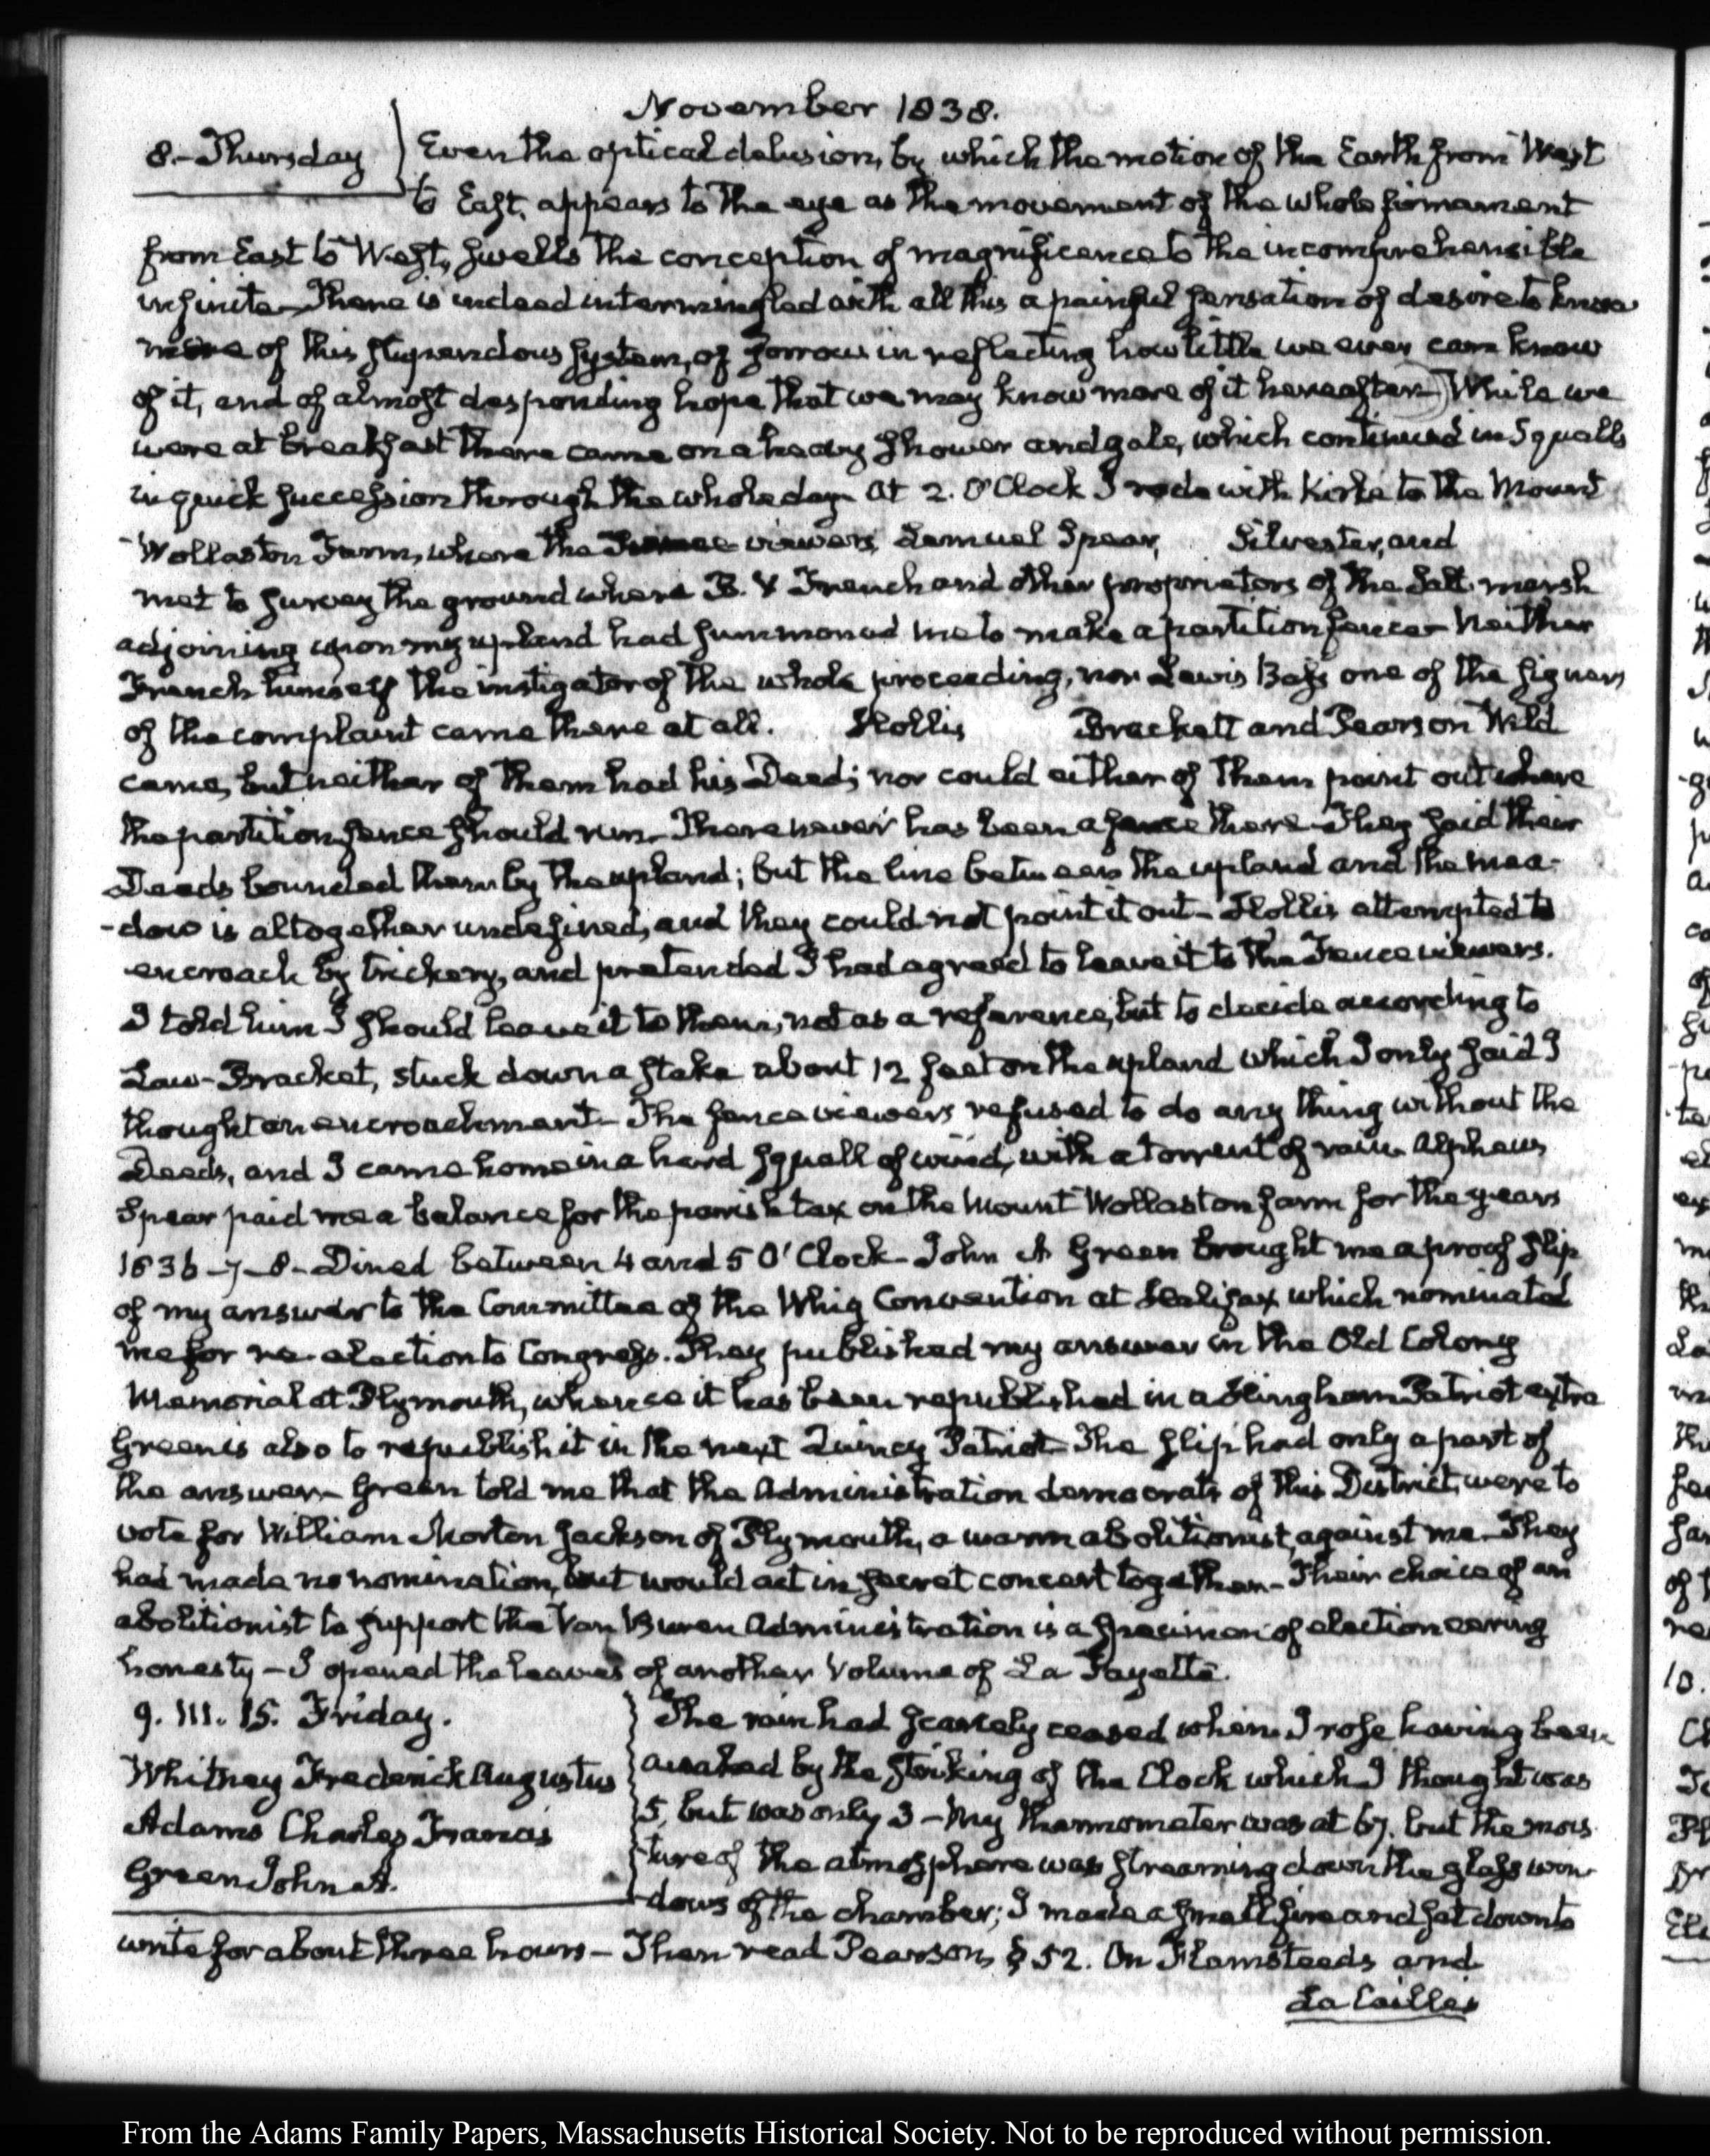 November 1838.
8.- Thursday
Even the optical delusion, by which the motion of the Earth from West
to East, appears to the eye as the movement of the whole firmament
from East to West, swells the conception of magnificence to the incomprehensible
infinite- There is indeed intermingled with all this a painful sensation of desire to know
more of this stupendous system, of sorrow in reflecting how little we ever can know
of it, and of almost desponding hope that we may know more of it hereafter) While we
were at breakfast there came on a heavy shower and gale, which continued in Squalls
in quick succession through the whole day- At 2. O'Clock I rode with Kirke to the Mount
Wollaston Farm, where the Fence viewers, Lemuel Spear, Silvester, and
met to survey the ground where B. V French and other proprietors of the Salt marsh
adjoining upon my upland had summoned me to make a partition fence- Neither
French himself the instigator of the whole proceeding, nor Lewis Bass one of the signers
of the complaint came there at all. Hollis Brackett and Pearson Wild
came, but neither of them had his Deed; nor could either of them point out where
the partition fence should run- There never has been a fence there- They said their
Deeds bounded them by the upland; but the line between the upland and the mea-
-dow is altogether undefined, and they could not point it out- Hollis attempted to
encroach by trickery, and pretended I had agreed to leave it to the Fence viewers.
I told him I should leave it to them, not as a reference, but to decide according to
Law- Bracket, stuck down a stake about 12 feet on the upland which I only said I
thought an encroachment- The fence viewers refused to do any thing without the
Deeds, and I came home in a hard squall of wind, with a torrent of rain- Alpheus
Spear paid me a balance for the parish tax on the Mount Wollaston farm for the years
1836-7-8- Dined between 4 and 5 O'Clock- John A Green brought me a proof slip
of my answer to the Committee of the Whig Convention at Halifax which nominated
me for re-election to Congress. They published my answer in the Old Colony
Memorial at Plymouth, whence it has been republished in a Hingham Patriot extra
Green is also to republish it in the next Quincy Patriot- The slip had only a part of
the answer- Green told me that the Administration democrats of this District were to
vote for William Morton Jackson of Plymouth, a warm abolitionist against me- They
had made no nomination, but would act in secret concert together- Their choice of an
abolitionist to support the Van Buren Administration is a specimen of electioneering
honesty- I opened the leaves of another volume of La Fayette.
9. III. 15. Friday.
Whitney Frederick Augustus
Adams Charles Francis
Green John A.
The rain had scarcely ceased when I rose having been
awaked by the striking of the Clock which I thought was
5, but was only 3- My thermometer was at 67. but the mois
-ture of the atmosphere was streaming down the glass win-
-dows of the chamber; I made a small fire and sat down to
write for about three hours- Then read Pearson, § 52. On Flamsteeds and
La Cailles
From the Adams Family Papers, Massachusetts Historical Society. Not to be reproduced without permission.